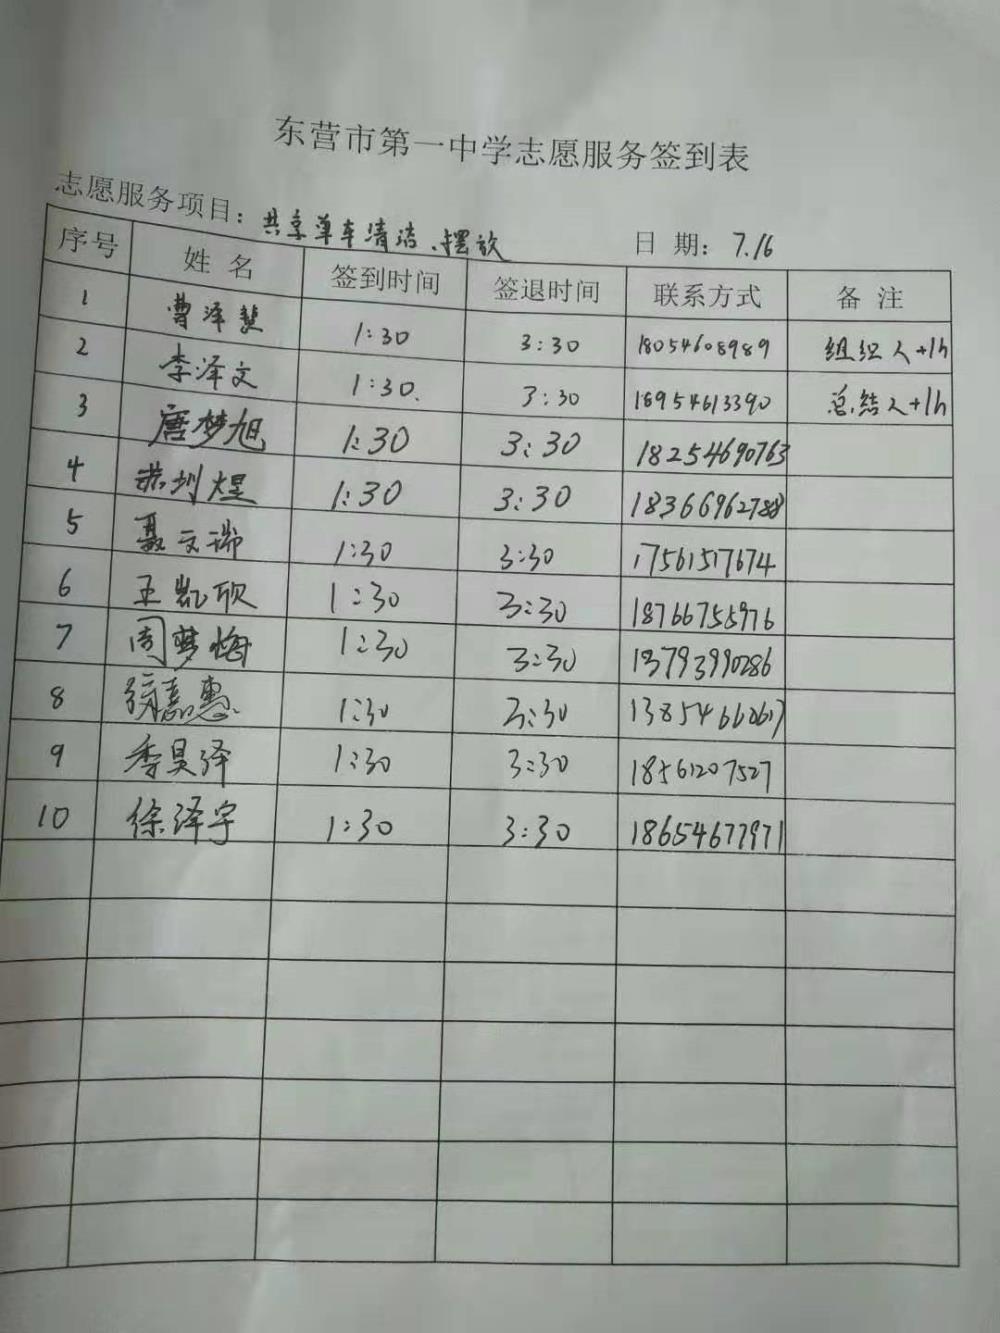 东营市第一中学志愿服务签到表
志愿服务项目：共享单车清洁、摆放 日 期：7.16
序号 姓 名 签到时间 签退时间 联系方式 备 注
1 曹泽慧 1:30 3:30 18054608989 组织人+1h
2 李泽文 1:30. 3:30 18954613390 总结人+1h
3 唐梦旭 1:30 3:30 18254690763
4 1:30 3:30 18366962788
5 聂文瑞 1:30 3:30 17561517674
6 王凯欣 1:30 3:30 18766755976
7 周梦梅 1:30 3:30 13793990286
8 嘉惠 1:30 3:30 13854660617
9 季昊泽 1:30 3:30 18561207527
10 徐泽宇 1:30 3:30 18654677971